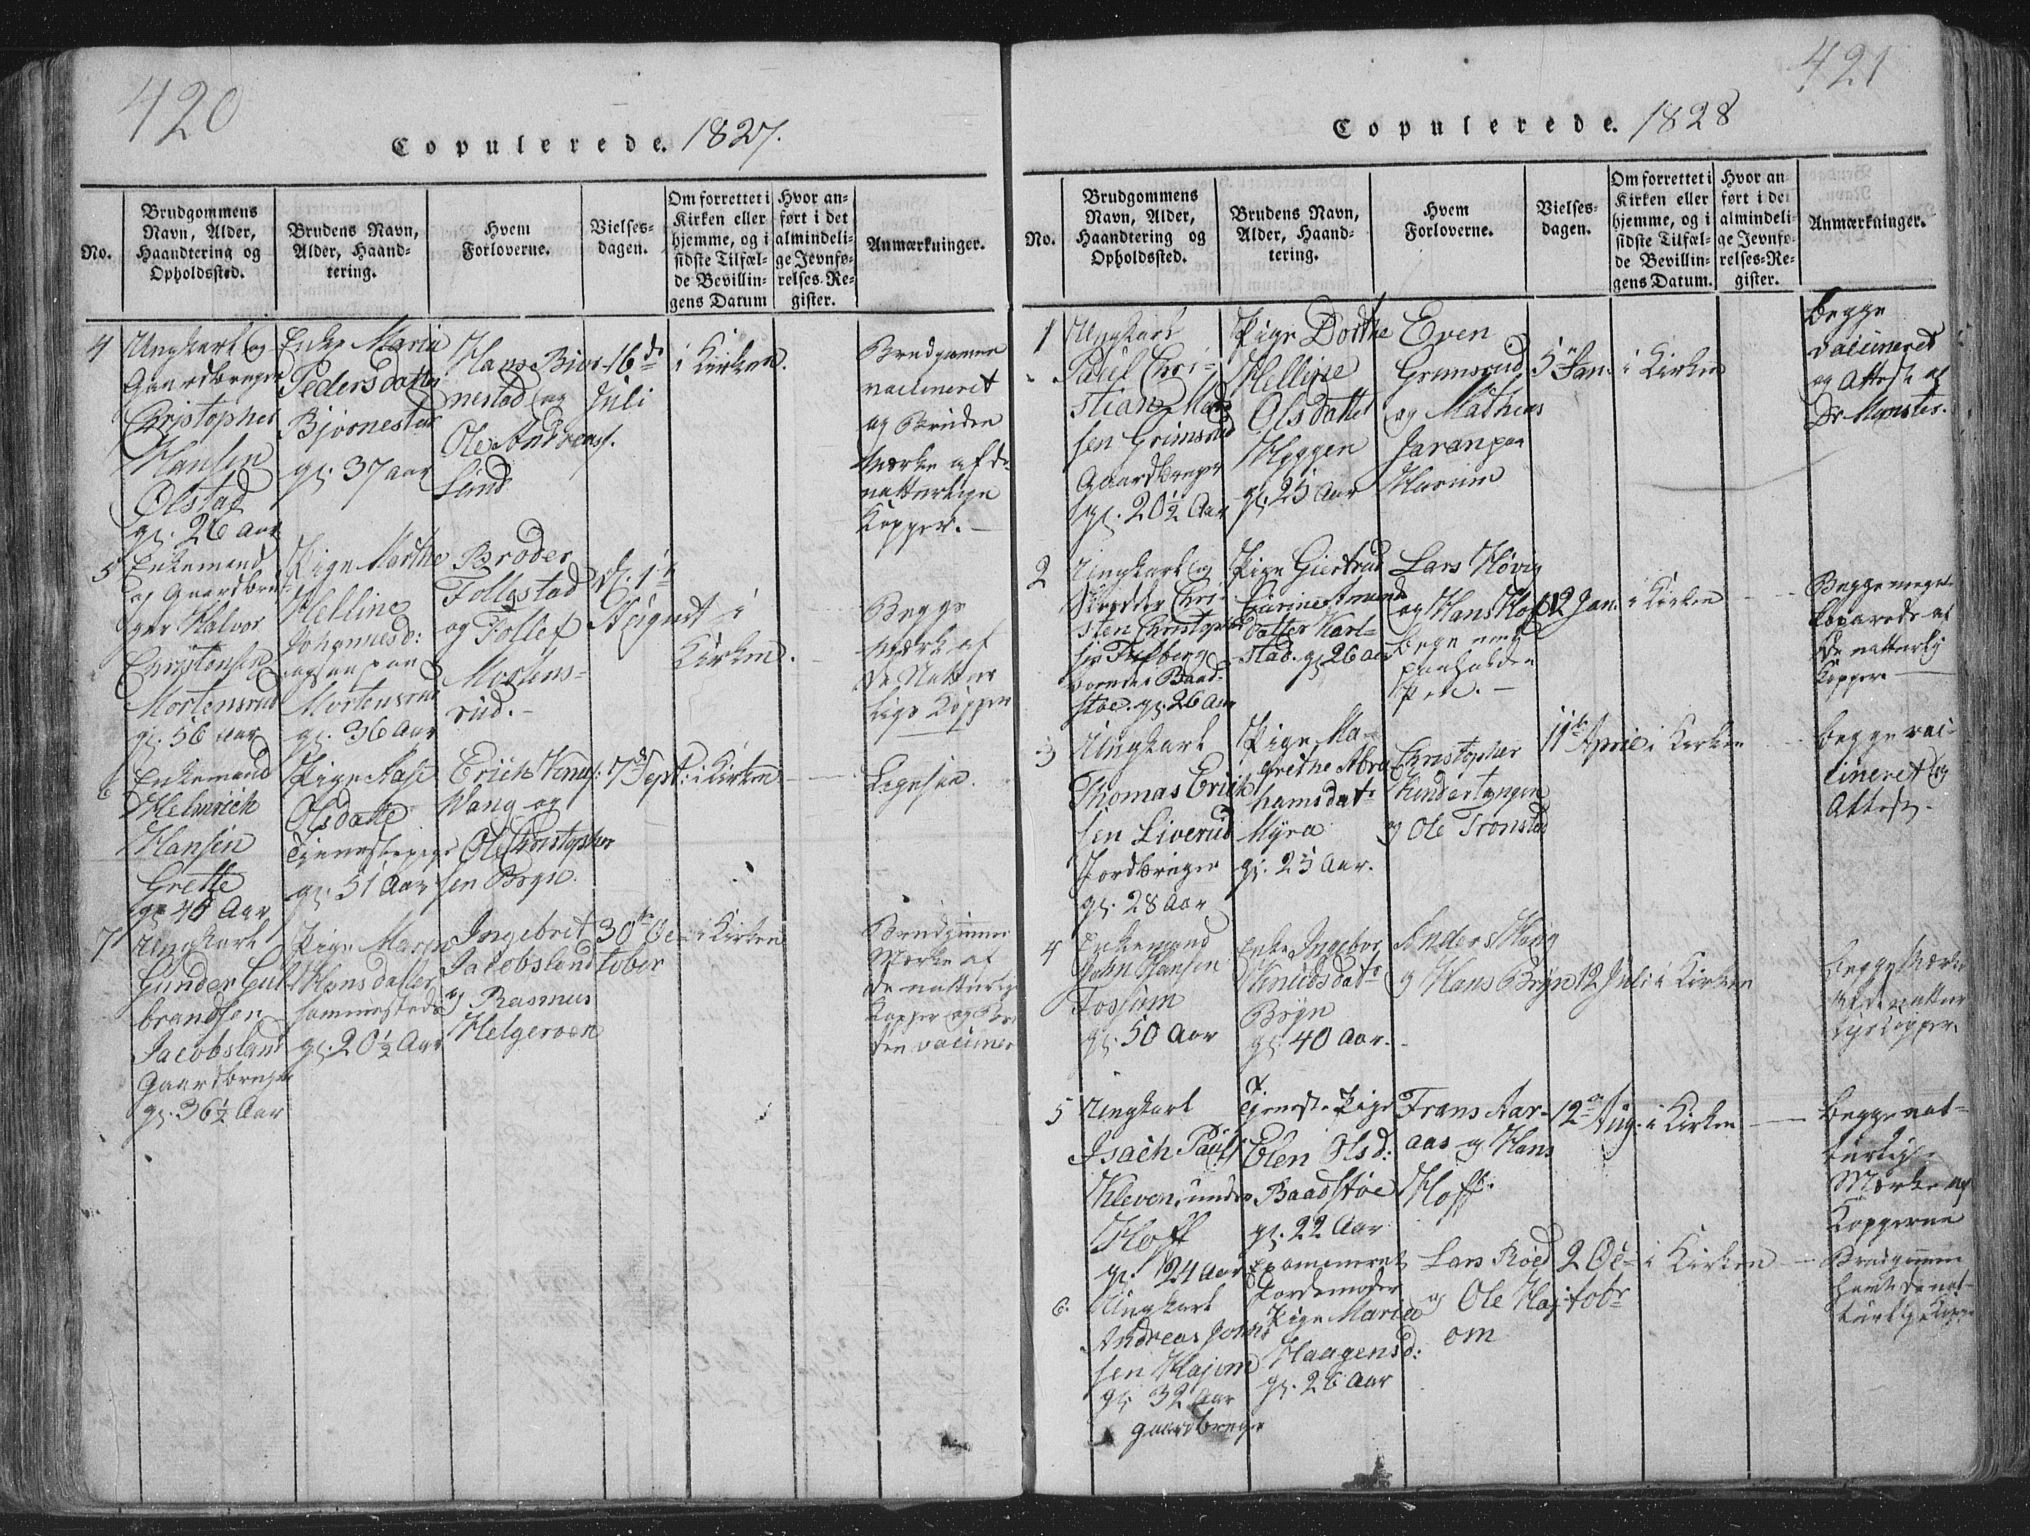 420
Copulerede. 1827.
No.
Brudgommens
Navn, Alder,
Haandtering og
Opholdssted.
Brudens Navn,
Alder, Haand-
tering.
Hvem
Forloverne.
Vielses-
dagen.
Om forrettet i
Kirken eller
hjemme, og i
sidste Tilfæl-
de Bevillin-
gens Datum
Hvor an-
ført i det
almindeli-
ge Jevnfø-
relses-Re-
gister.
Anmærkninger.
4
Ungkarl og
Gaardbruger
Christopher
Hansen
Olstad
gl. 26 Aar
Enke Maria
Pedersdatter
Bjørnestad
gl. 37 aar
Hans Biør-
nestad og
Ole Andreas.
Lund
16de
Juli
i Kirken.
Brudgommen
vaccineret
og Bruden
Mærke af de
naturlige
Kopper.
5
Enkemand
og Gaardbru-
ger Halvor
Christensen
Mortensrud
gl. 56 aar
Pige Marthe
Helline
Johannesd:
ogsaa paa
Mortensrud
gl. 36 Aar
Broder
Follestad
og Tollef
Mortens-
rud.
d. 1te
August
i
Kirken.
Begge
Mærke af
de Natur
lige Kopper
6
Enkemand
Helmrich
Hansen
Grette
gl. 45 Aar
Pige Aase
Olsdatter
Tjenestepige
gl. 51 Aar
Erich
Wang og
Ole Christopher
sen Bøyn.
7de Sept:
i Kirken
Ligesaa.
7
Ungkarl
Gunder Gul-
brandsen
Jacobsland
Gaardbruger
gl. 36½ Aar
Pige Maren
Hansdatter
sammesteds
gl. 20½ Aar
Ingebret
Jacobsland
og Rasmus
Helgeroen
30te Oc-
tober
i Kirken
Brudgommen
Mærke af
de naturlige
Kopper og Bru
den vaccineret
421
Copulerede. 1828
No.
Brudgommens
Navn, Alder,
Haandtering og
Opholdssted.
Brudens Navn,
Alder, Haand-
tering.
Hvem
Forloverne.
Vielses-
dagen.
Om forrettet i
Kirken eller
hjemme, og i
sidste Tilfæl-
de Bevillin-
gens Datum.
Hvor an-
ført i det
almindeli-
ge Jevnfø-
relses-Re-
gister.
Anmærkninger.
1
Ungkarl
Paul Chri-
stian Mad
sen Grimsrud
Gaardbruger
gl. 20½ Aar
Pige Dorthe
Helline
Olsdatter
Hyggen
gl. 25 Aar
Even
Grimsrud
og Mathias
5 Jan.
i Kirken
Begge
vaccineret
og Attest af
Dr Munster.
2
Ungkarl og
Skredder Chri-
sten Christopher
sen
gl. 26 Aar
Pige Giertrud
Karine Amund
datter Karl-
stad. gl. 26 aar
Lars Høvig
og Hans Hoff
12 Jan.
i Kirken
Begge meget
koparrede af
de naturlig
Kopper
3
Ungkarl
Thomas Erich
sen Liverud
Jordbruger
gl. 28 Aar
Pige Ma-
grethe Abra
hamsdatr
Myra
gl. 25 Aar.
Christopher
Kindertyngen
og Ole Tronstad
11te April
i Kirken
Begge vac-
cineret og
Attest.
4
Enkemand
John Hansen
Fossum
gl. 50 Aar
Enke Ingebor
Knudsdatr
Bøyn
gl. 40 Aar.
Anders Haug
og Hans Bøyn
12 Juli
i Kirken
Begge Mærke
af de natur
lige Kopper.
5
Ungkarl
Isach Pauls
Kleven, under
Hoff
gl. 24 Aar
Tjeneste Pige
Elen Olsd:
Baadstøe
gl. 22 Aar
Examineret
Jordemoder
Frans Aar-
aas og Hans
Hoff.
12te Aug.
i Kirken
Begge nat-
turlige
Mærke af
Kopperne
6.
Ungkarl
Andreas John
sen Hajem
gl. 32 Aar
gaardbruger
Pige Maria
Haagensd:
gl. 26 Aar
Lars Röed
og Ole Haj-
om
2 Oc-
tobr
i Kirken
Brudgommen
havde de nat-
turlige Kopper